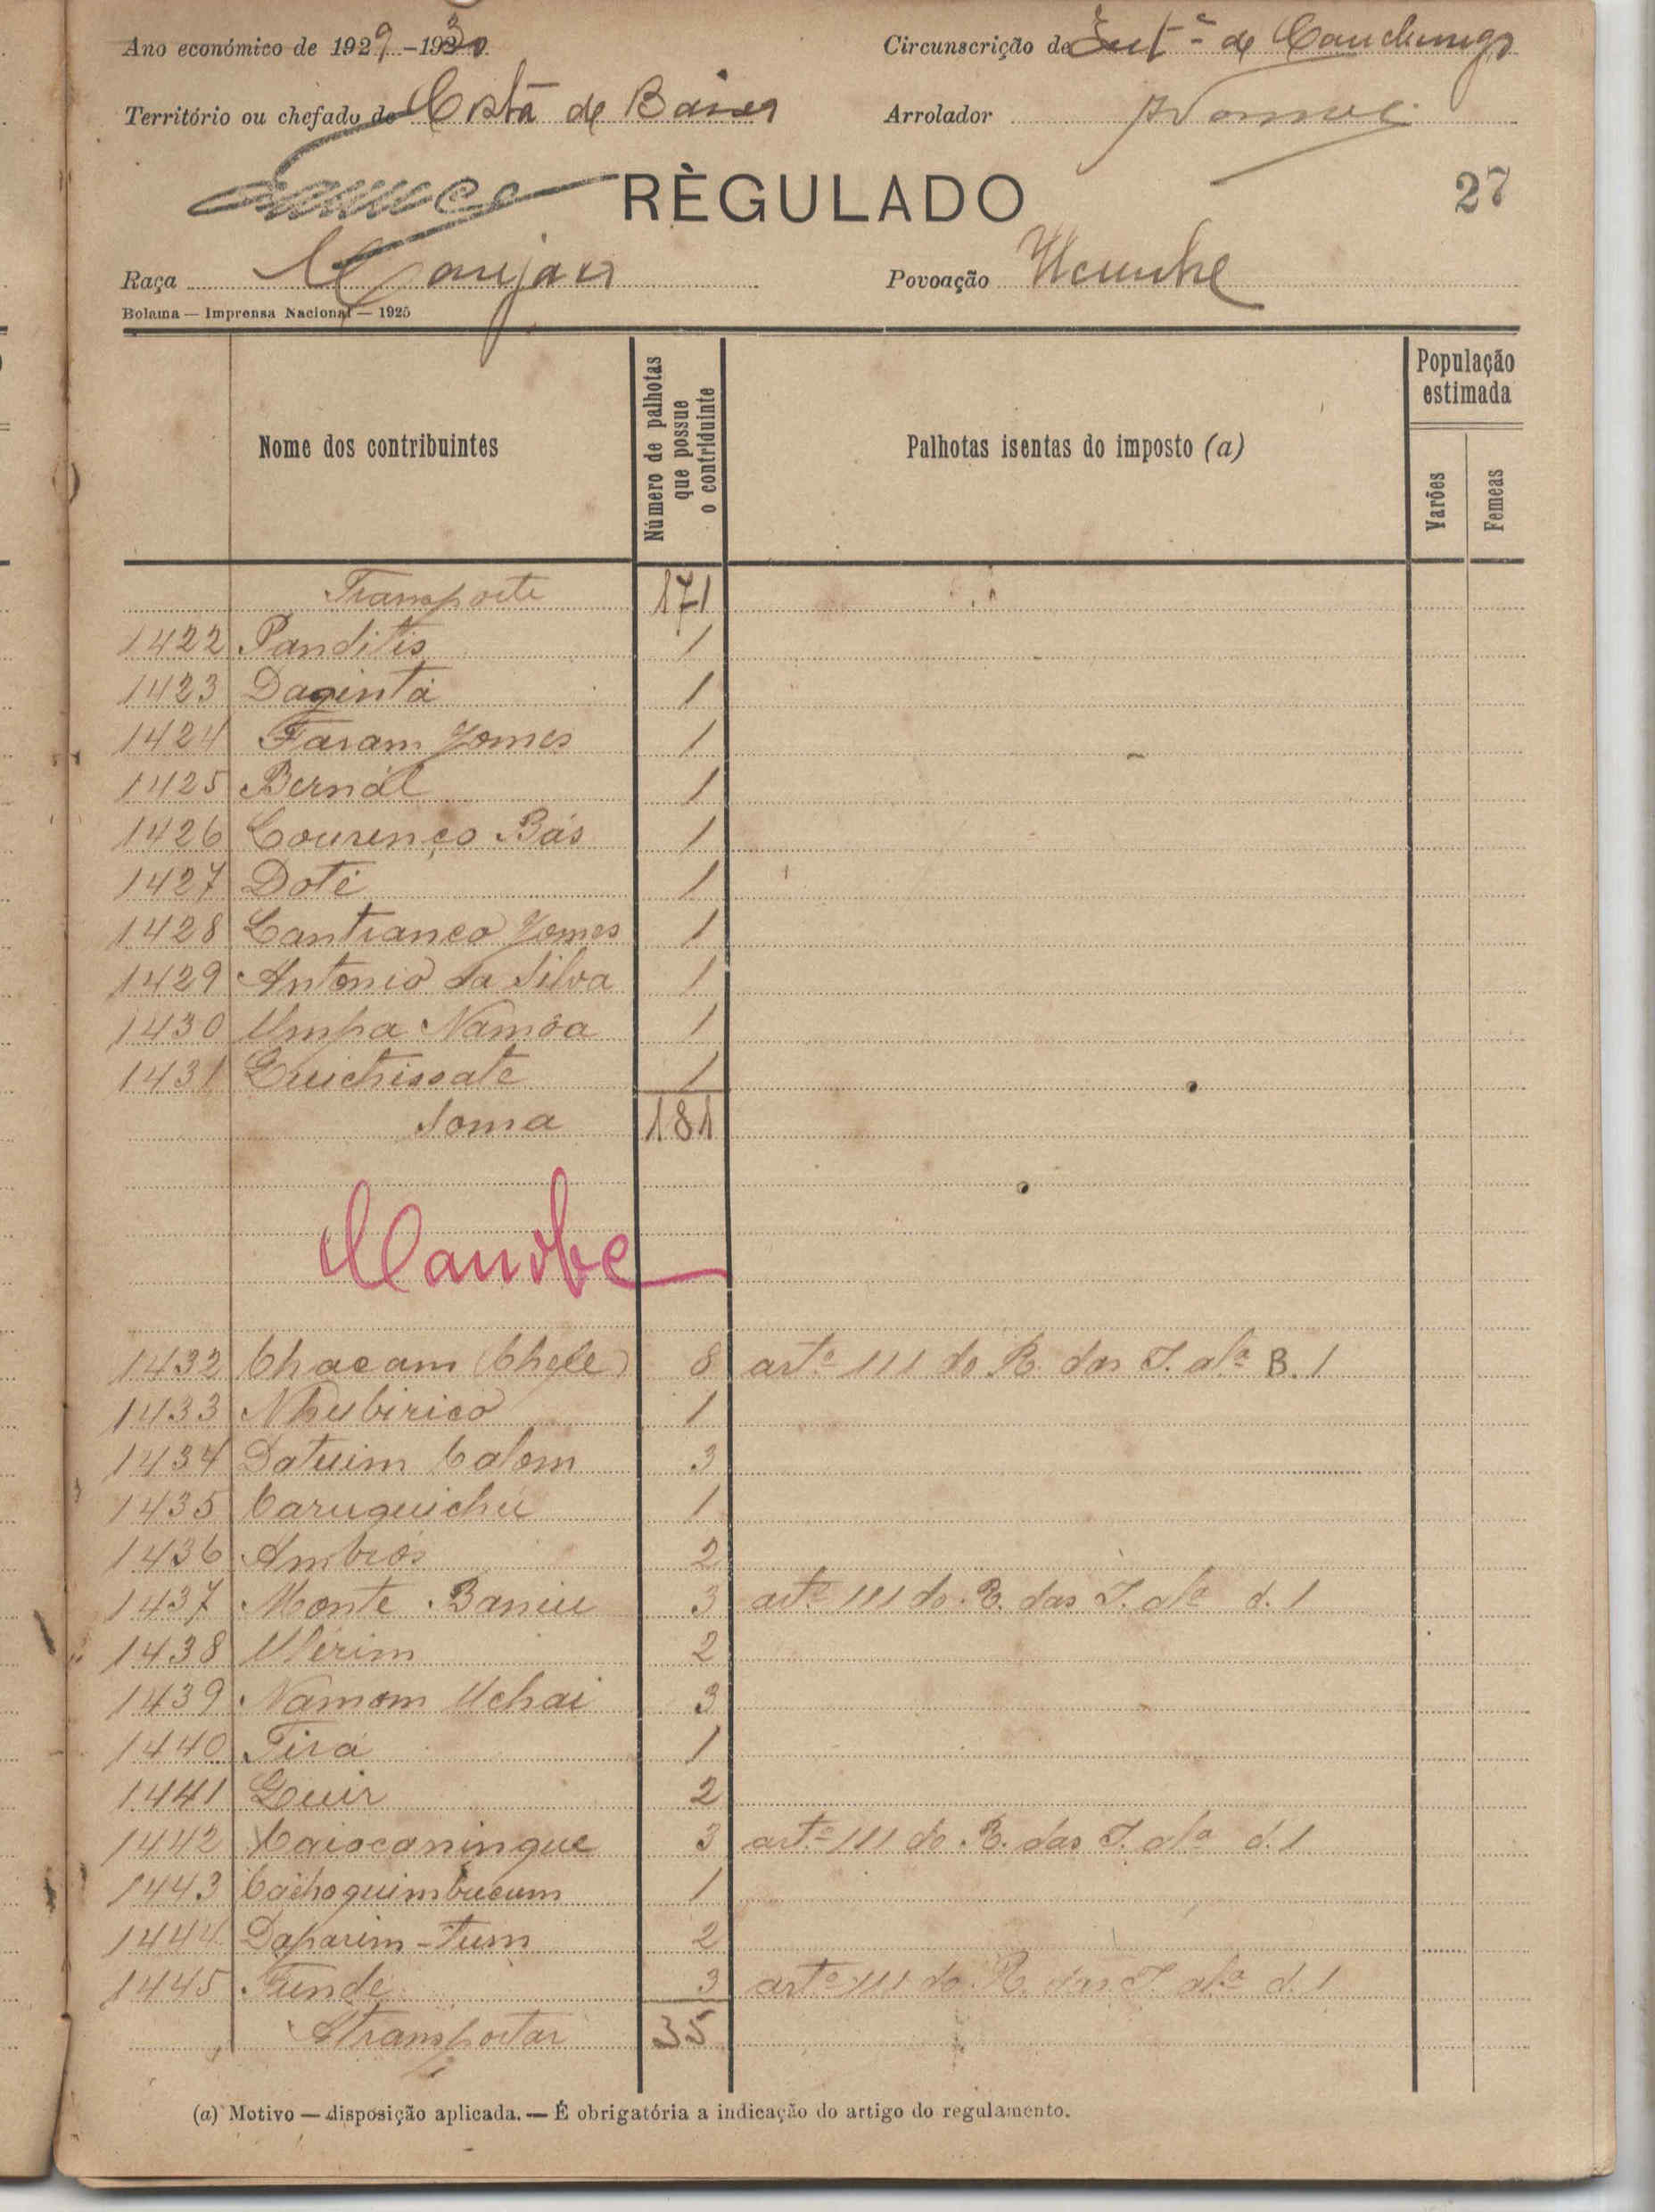 Ano económico de 1929-1930
Circunscrição de de Canchungo
Território ou chefado de Costa de Baixo
Arrolador
RÈGULADO
27
Raça Manjaca
Povoação Ucunhe
Bolama — Imprensa Nacional — 1925
Nome dos contribuintes
Número de palhotas que possue o contriduinte
Palhotas isentas do imposto (a)
População estimada
Varões
Femeas
Transporte 171
1422 Panditis 1
1423 Daginta 1
1424 Faram Gomes 1
1425 Bernál 1
1426 Lourenço Bás 1
1427 Doté 1
1428 Canfranco Gomes 1
1429 Antonio da Silva 1
1430 Umpa Namôa 1
1431 Quichissate 1
Soma 181
Manobe
1432 Chacam (Chefe) 8 artº 111 do R. das I. alª B. 1
1433 Nhubirico 1
1434 Datuim Calom 3
1435 Caruguichu 1
1436 Ambrós 2
1437 Monte Baniu 3 artº 111 do R. das I. alª d. 1
1438 Uerim 2
1439 Namom Uchai 3
1440 Tirá 1
1441 Guir 2
1442 Caiocaningue 3 artº 111 do R. das I. alª d. 1
1443 Cachoguimbucum 1
1444 Daparim-Tum 2
1445 Funde 3 artº 111 do R. das I. alª d. 1
A transportar 35
(a) Motivo — disposição aplicada. — É obrigatória a indicação do artigo do regulamento.